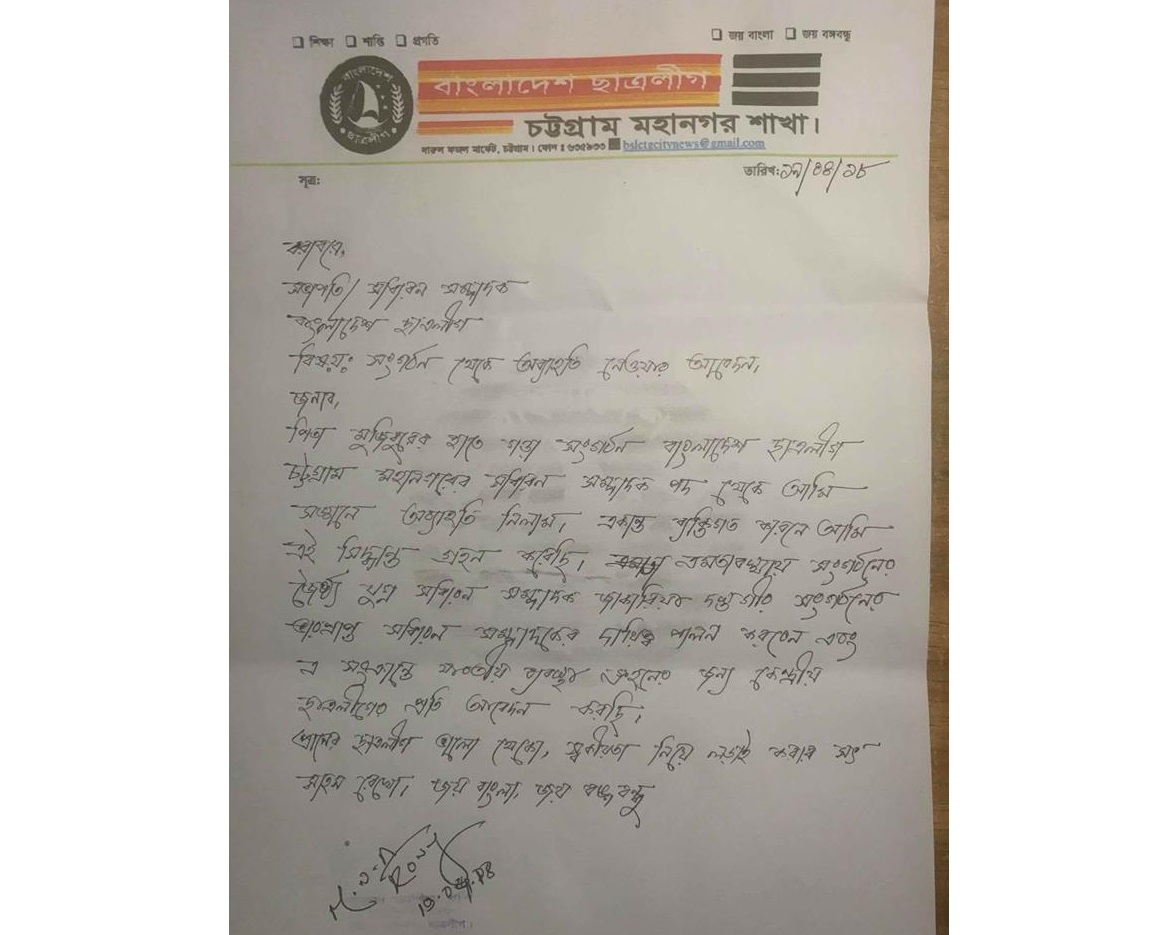 শিক্ষা শান্তি প্রগতি
জয় বাংলা জয় বঙ্গবন্ধু
বাংলাদেশ ছাত্রলীগ
বাংলাদেশ ছাত্রলীগ
চট্টগ্রাম মহানগর শাখা।
দারুল ফজল মার্কেট, চট্টগ্রাম। ফোন ঃ ৬৩৫৯৩৩ bslctgcitynews@gmail.com
সূত্র:
তারিখ: ১৯/০৪/১৮
বরাবরে,
সভাপতি/ সাধারন সম্পাদক
বাংলাদেশ ছাত্রলীগ
বিষয়ঃ সংগঠন থেকে অব্যাহতি নেওয়ার আবেদন,
জনাব,
পিতা মুজিবুরের হাতে গড়া সংগঠন বাংলাদেশ ছাত্রলীগ
চট্টগ্রাম মহানগরের সাধারন সম্পাদক পদ থেকে আমি
সজ্ঞানে অব্যাহতি নিলাম, একান্ত ব্যক্তিগত কারনে আমি
এই সিদ্ধান্ত গ্রহন করেছি, এমতাবস্থায় সংগঠনের
জৈষ্ঠ্য যুগ্ন সাধারন সম্পাদক জাকারিয়া দস্তগীর সংগঠনের
ভারপ্রাপ্ত সাধারন সম্পাদকের দায়িত্ব পালন করবেন এবং
এ সংক্রান্তে যাবতীয় ব্যবস্থা গ্রহনের জন্য কেন্দ্রীয়
ছাত্রলীগের প্রতি আবেদন করছি,
প্রানের ছাত্রলীগ ভালো থেকো, স্বকীয়তা নিয়ে লড়াই করার সৎ
সাহস রেখো, জয় বাংলা, জয় বঙ্গবন্ধু
Rony
19.04.18